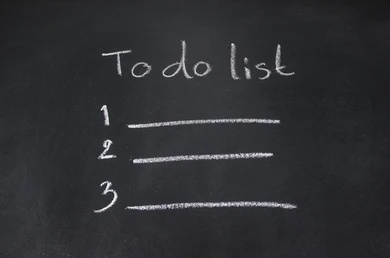 To do list
1
2
3